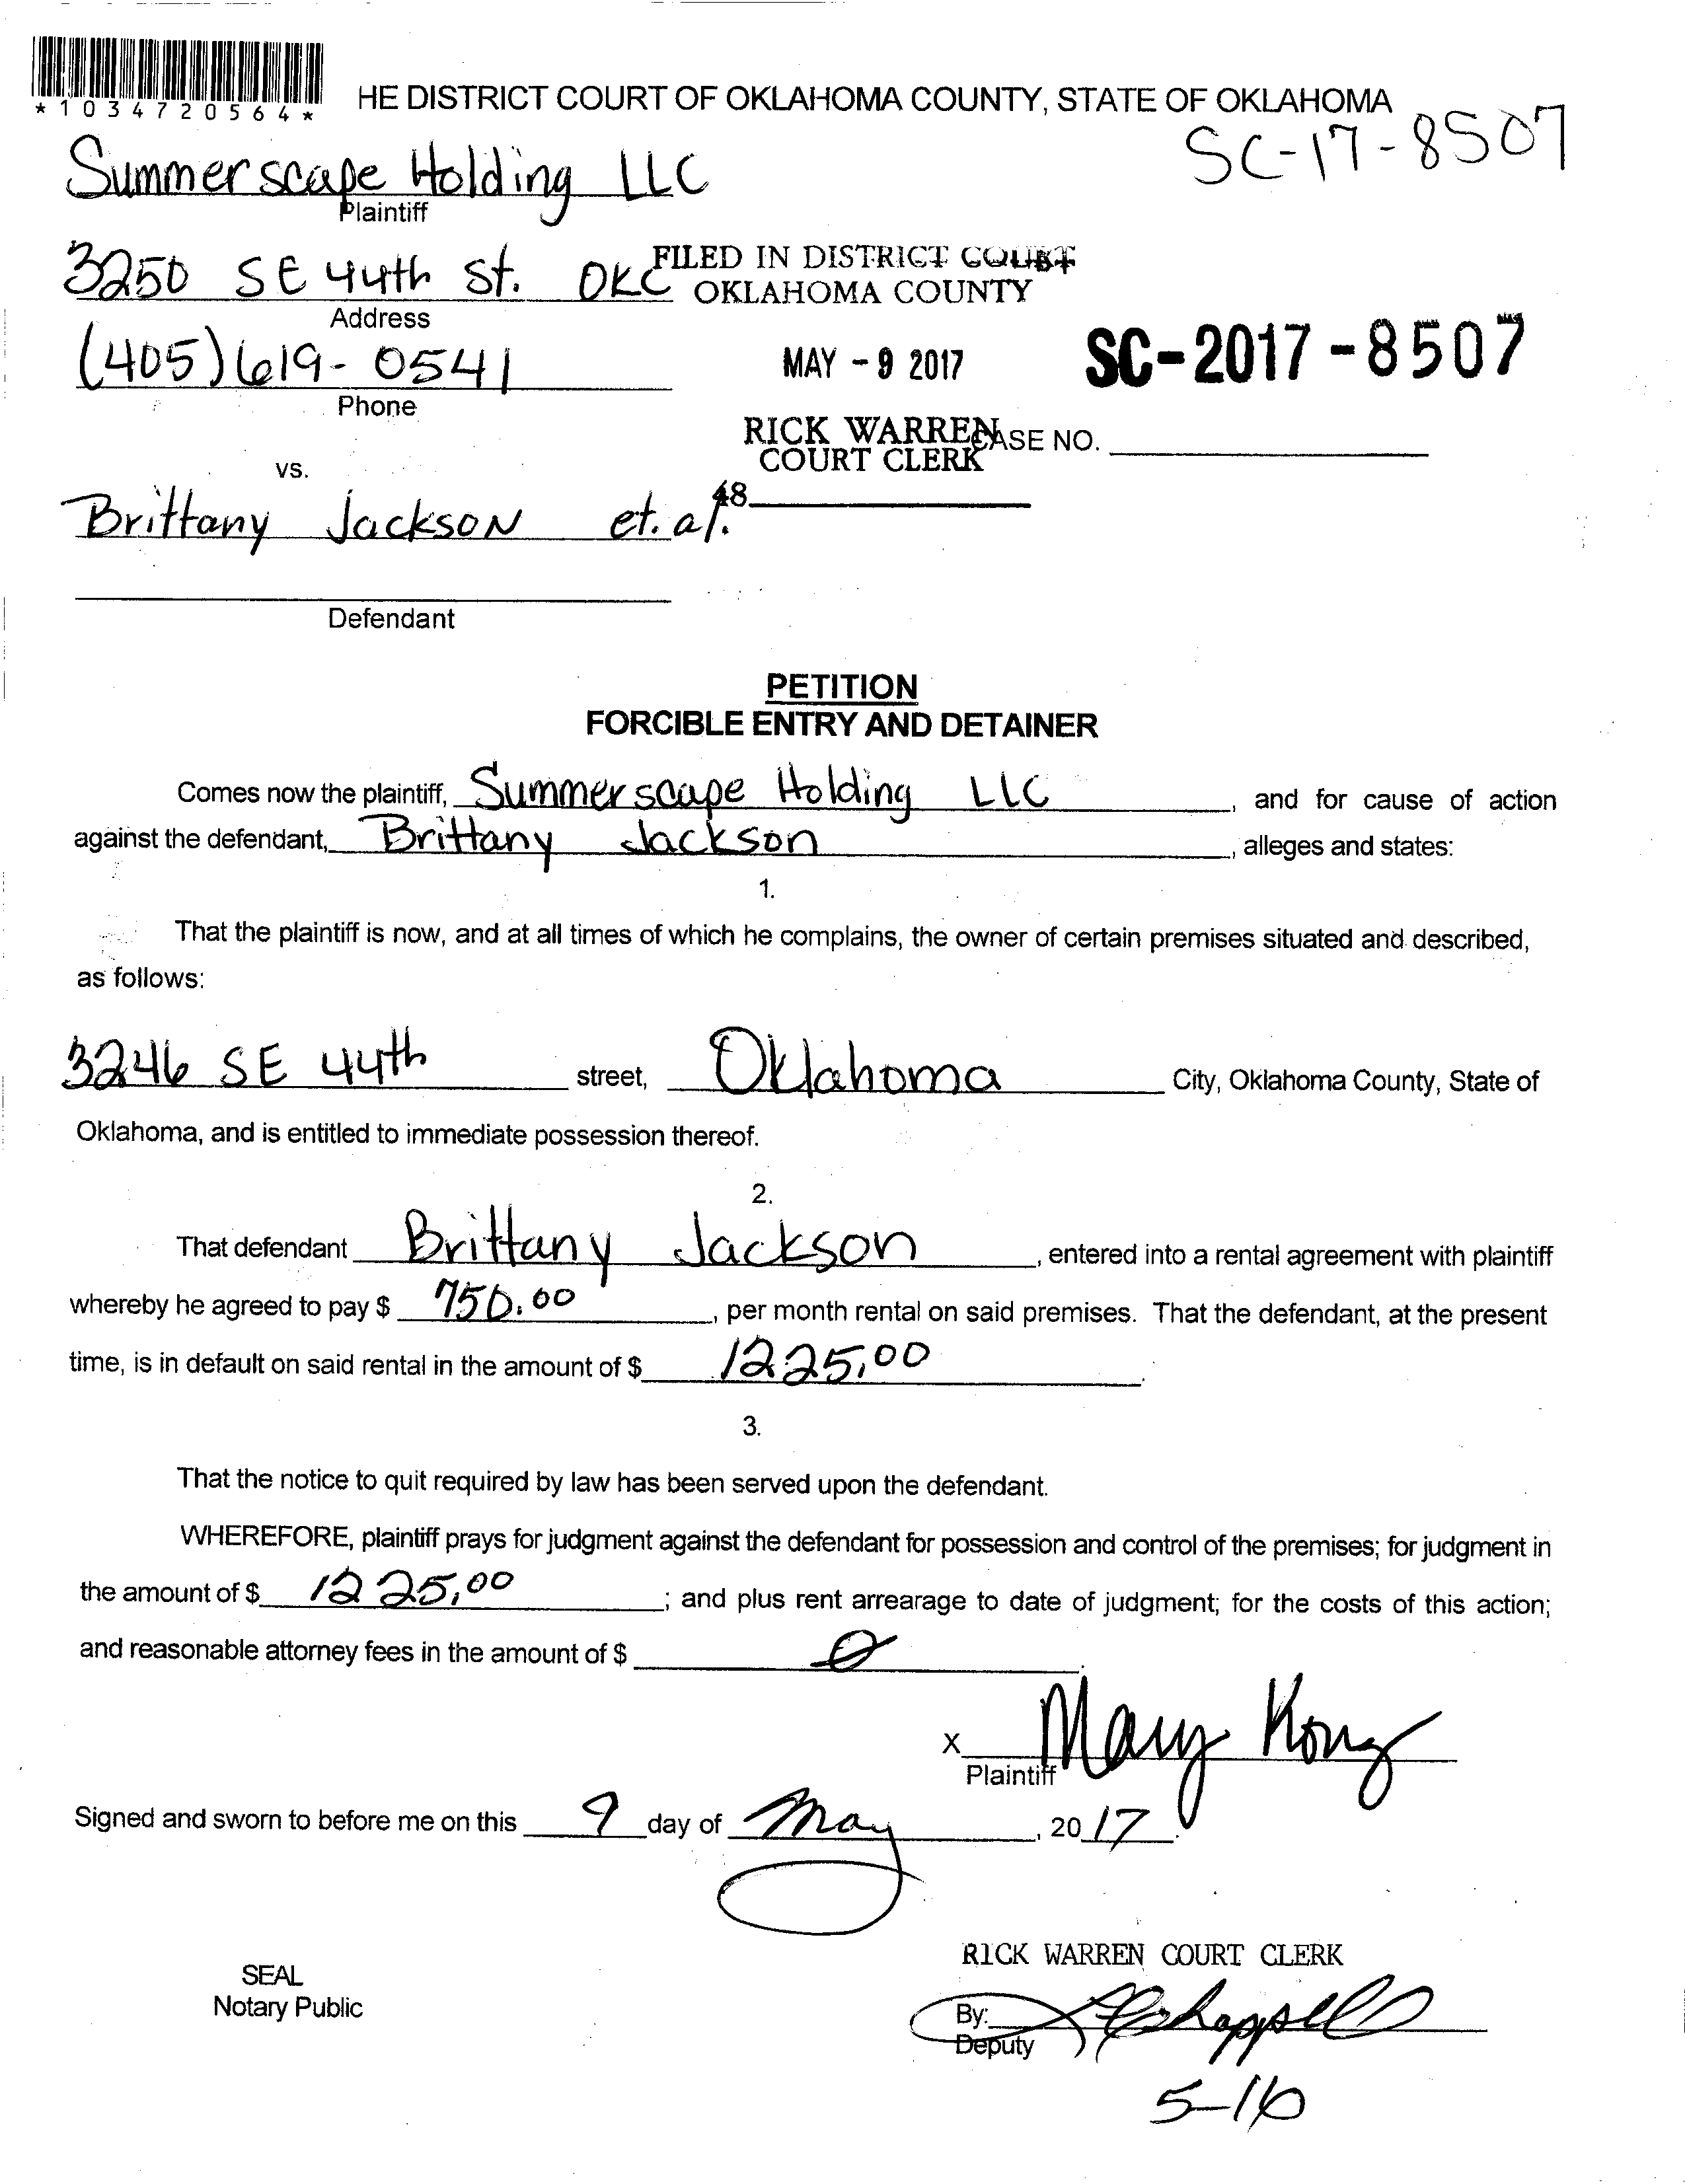 *1034720564*
HE DISTRICT COURT OF OKLAHOMA COUNTY, STATE OF OKLAHOMA
SC-17-8507
Summerscape Holding LLC
Plaintiff
3250 SE 44th St. OKC
FILED IN DISTRICT COURT
OKLAHOMA COUNTY
Address
(405) 619-0541
MAY - 9 2017
SC-2017-8507
Phone
RICK WARREN
COURT CLERK
CASE NO.
vs.
48
Brittany Jackson et. al.
Defendant
PETITION
FORCIBLE ENTRY AND DETAINER
Comes now the plaintiff, Summerscape Holding LLC, and for cause of action
against the defendant, Brittany Jackson, alleges and states:
1.
That the plaintiff is now, and at all times of which he complains, the owner of certain premises situated and described,
as follows:
3246 SE 44th street, Oklahoma City, Oklahoma County, State of
Oklahoma, and is entitled to immediate possession thereof.
2.
That defendant Brittany Jackson, entered into a rental agreement with plaintiff
whereby he agreed to pay $ 750.00, per month rental on said premises. That the defendant, at the present
time, is in default on said rental in the amount of $ 1225.00.
3.
That the notice to quit required by law has been served upon the defendant.
WHEREFORE, plaintiff prays for judgment against the defendant for possession and control of the premises; for judgment in
the amount of $ 1225.00; and plus rent arrearage to date of judgment; for the costs of this action;
and reasonable attorney fees in the amount of $ 0.
X Mary Kong
Plaintiff
Signed and sworn to before me on this 9 day of May, 2017.
RICK WARREN COURT CLERK
SEAL
Notary Public
By:
Deputy
5-16